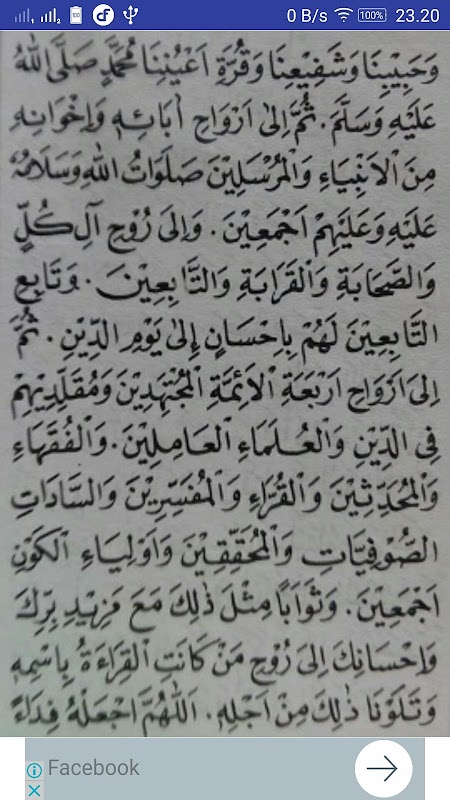 0 B/s 100% 23.20
وَحَبِيْبِنَا وَشَفِيْعِنَا وَقُرَّةِ اَعْيُنِنَا مُحَمَّدٍ صَلَّى اللهُ
عَلَيْهِ وَسَلَّمَ. ثُمَّ اِلىٰ اَرْوَاحِ اٰبَائِهٖ وَاِخْوَانِهٖ
مِنَ الْاَنْبِيَاءِ وَالْمُرْسَلِيْنَ صَلَوَاتُ اللهِ وَسَلَامُهُ
عَلَيْهِ وَعَلَيْهِمْ اَجْمَعِيْنَ. وَاِلىَ رُوْحِ آلِ كُلٍّ
وَالصَّحَابَةِ وَالْقَرَابَةِ وَالتَّابِعِيْنَ. وَتَابِعِ
التَّابِعِيْنَ لَهُمْ بِاِحْسَانٍ اِلىٰ يَوْمِ الدِّيْنِ. ثُمَّ
اِلىَ اَرْوَاحِ اَرْبَعَةِ الْاَئِمَّةِ الْمُجْتَهِدِيْنَ وَمُقَلِّدِيْهِمْ
فِى الدِّيْنِ وَالْعُلَمَاءِ الْعَامِلِيْنَ. وَالْفُقَهَاءِ
وَالْمُحَدِّثِيْنَ وَالْقُرَّاءِ وَالْمُفَسِّرِيْنَ وَالسَّادَاتِ
الصُّوْفِيَّاتِ وَالْمُحَقِّقِيْنَ وَاَوْلِيَاءِ الْكَوْنِ
اَجْمَعِيْنَ. وَثَوَابًا مِثْلَ ذٰلِكَ مَعَ مَزِيْدِ بِرِّكَ
وَاِحْسَانِكَ اِلىَ رُوْحِ مَنْ كَانَتِ الْقِرَاءَةُ بِاسْمِهٖ
وَتَلَوْنَا ذٰلِكَ مِنْ اَجْلِهٖ. اَللّٰهُمَّ اجْعَلْهُ فِدَاءً
Facebook